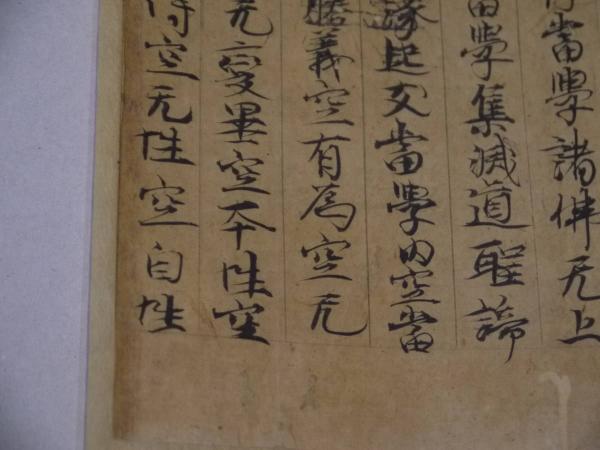 當學諸佛无上
當學集滅道聖諦
緣起支當學內空當
勝義空有為空无
无變異空本性空
得空无性空自性